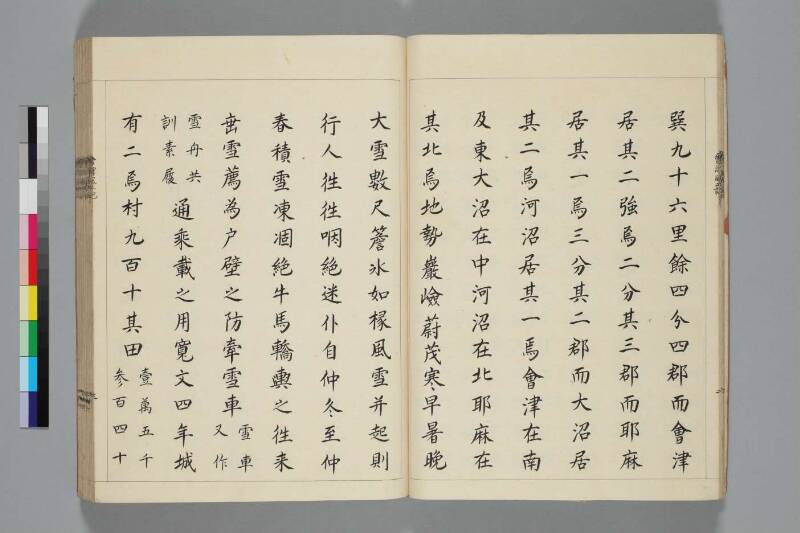 巽九十六里餘四分四郡而會津
居其二強焉二分其三郡而耶麻
居其一焉三分其二郡而大沼居
其二焉河沼居其一焉會津在南
及東大沼在中河沼在北耶麻在
其北焉地勢巖嶮蔚茂寒早暑晚
大雪數尺簷氷如椽風雪并起則
行人徃徃咽絕迷仆自仲冬至仲
春積雪凍涸絕牛馬轎輿之徃来
垂雪薦為户壁之防牽雪車 雪車又作
雪舟共訓素履 通乘載之用寬文四年城
有二焉村九百十其田 壹萬五千参百四十